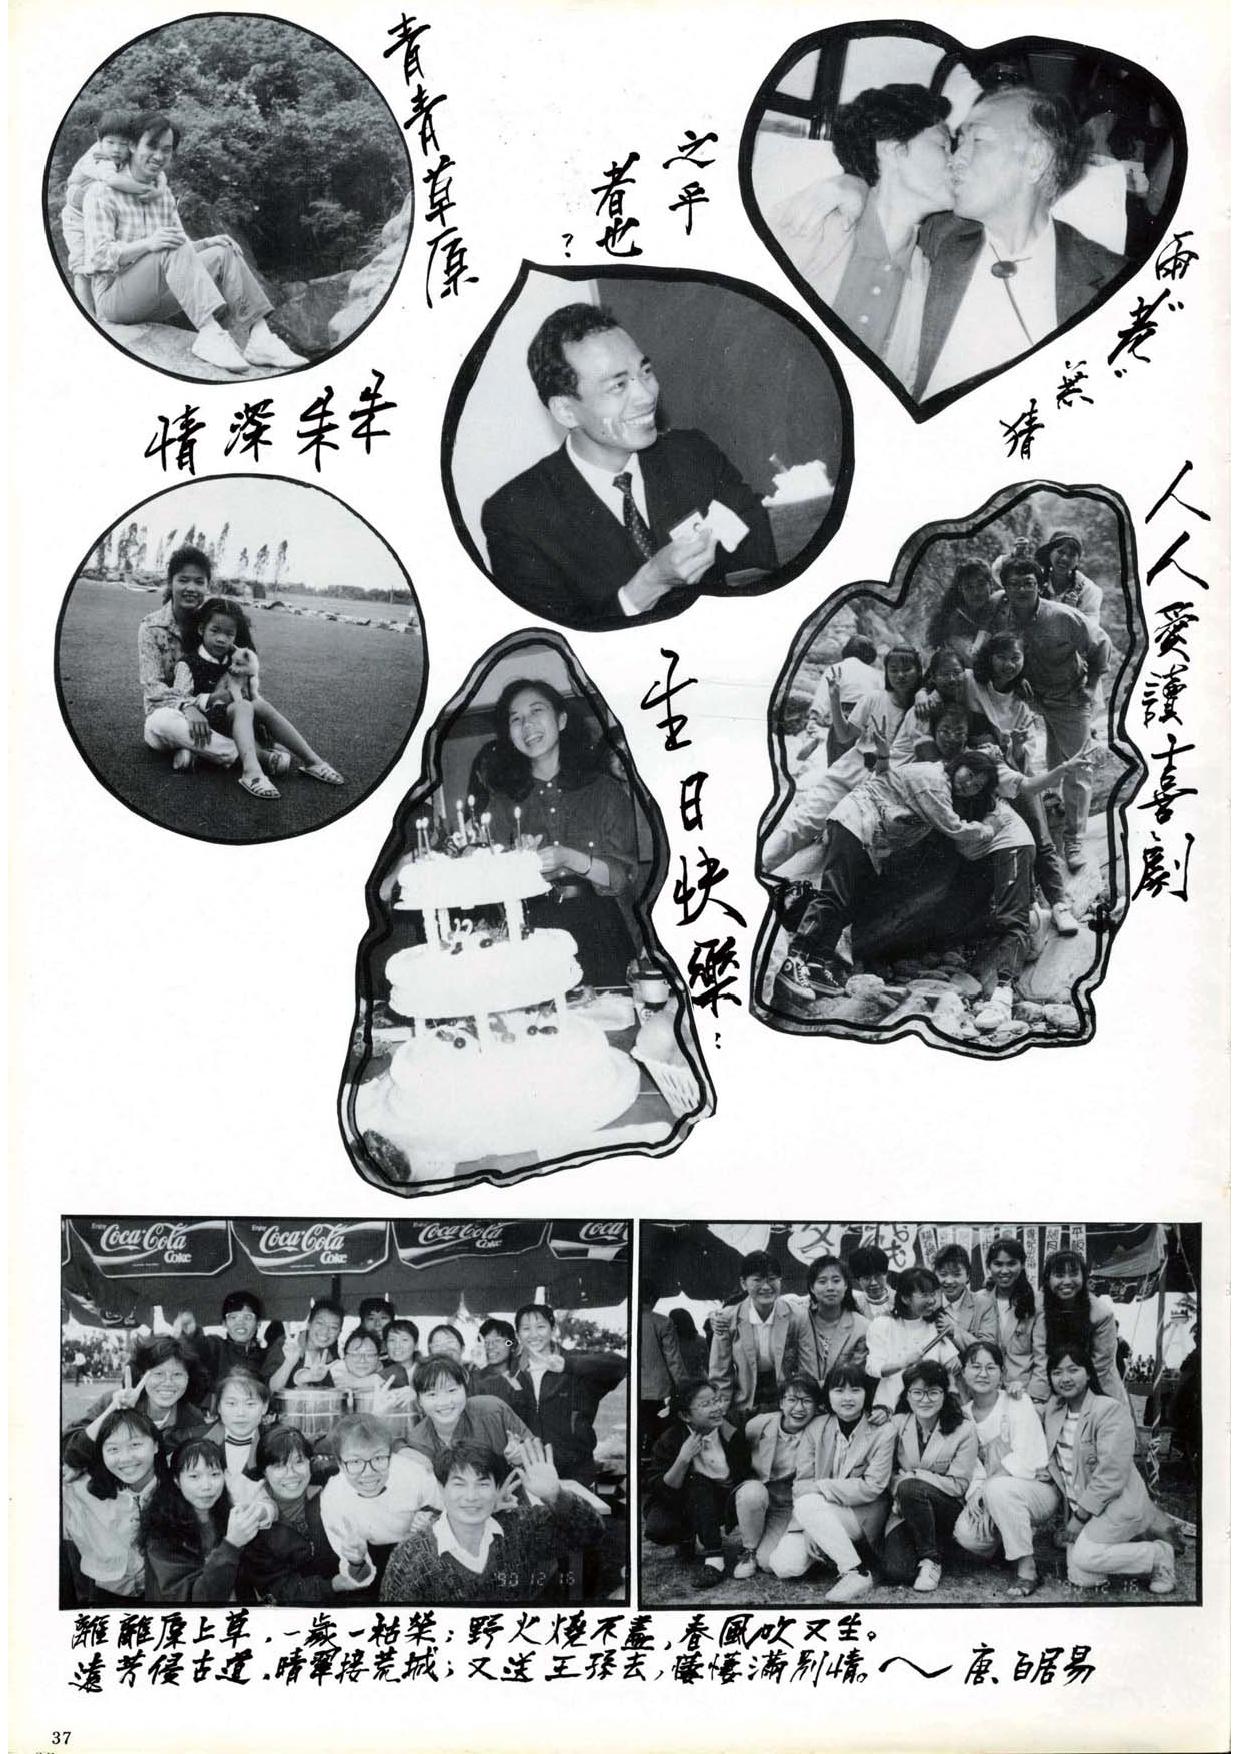 青青草原
之乎
者也
?
兩"老"無猜
情深朵朵
人人愛讀喜劇
生日快樂:
Enjoy
Coca-Cola
Coke
Enjoy
Coca-Cola
Coke
Coca-Cola
Coke
Coca
'90 12 16
'90 12 16
離離原上草,一歲一枯榮;野火燒不盡,春風吹又生。
遠芳侵古道,晴翠接荒城;又送王孫去,萋萋滿別情。~唐.白居易
37